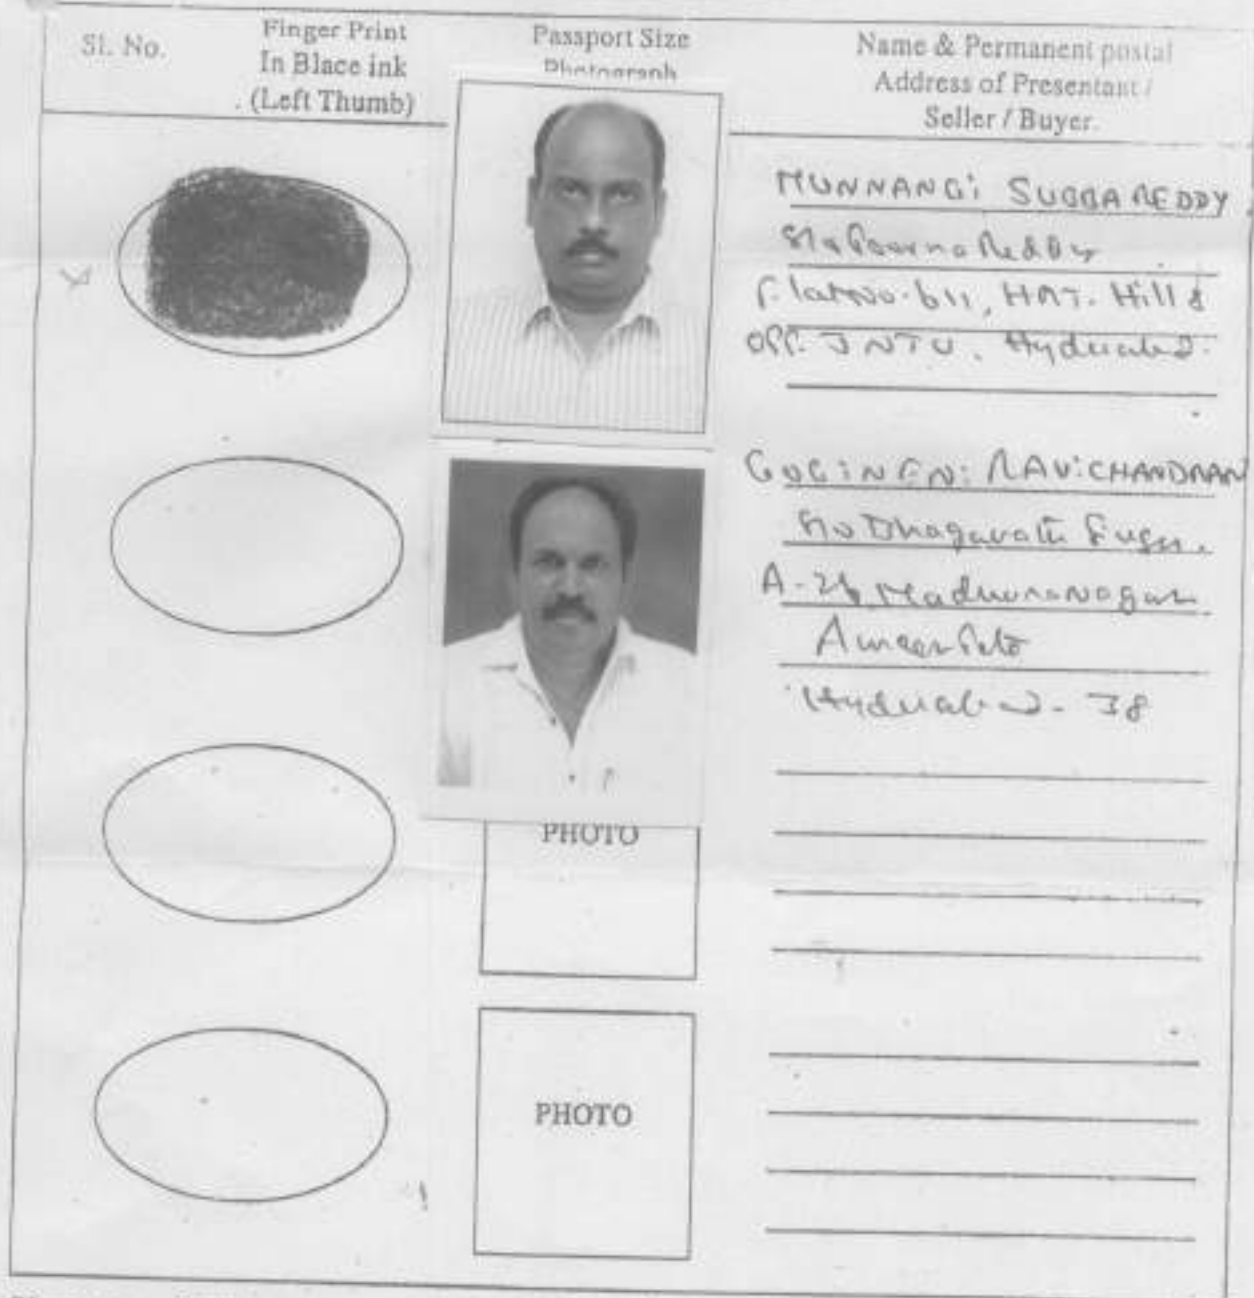 Sl. No.
Finger Print
In Blace ink
(Left Thumb)
Passport Size
Photograph
Name & Permanent postal
Address of Presentant /
Seller / Buyer.
MUNNANGi SUBBA REDDY
S/o Poorna Reddy
F. lat No. 611, HMT. Hills
OPP. JNTU. Hyderabad.
GOGiNENi RAViCHANDRAN
S/o Bhagavath
A-26, Madhuranagar
Ameerpet
Hyderabad - 38
PHOTO
PHOTO